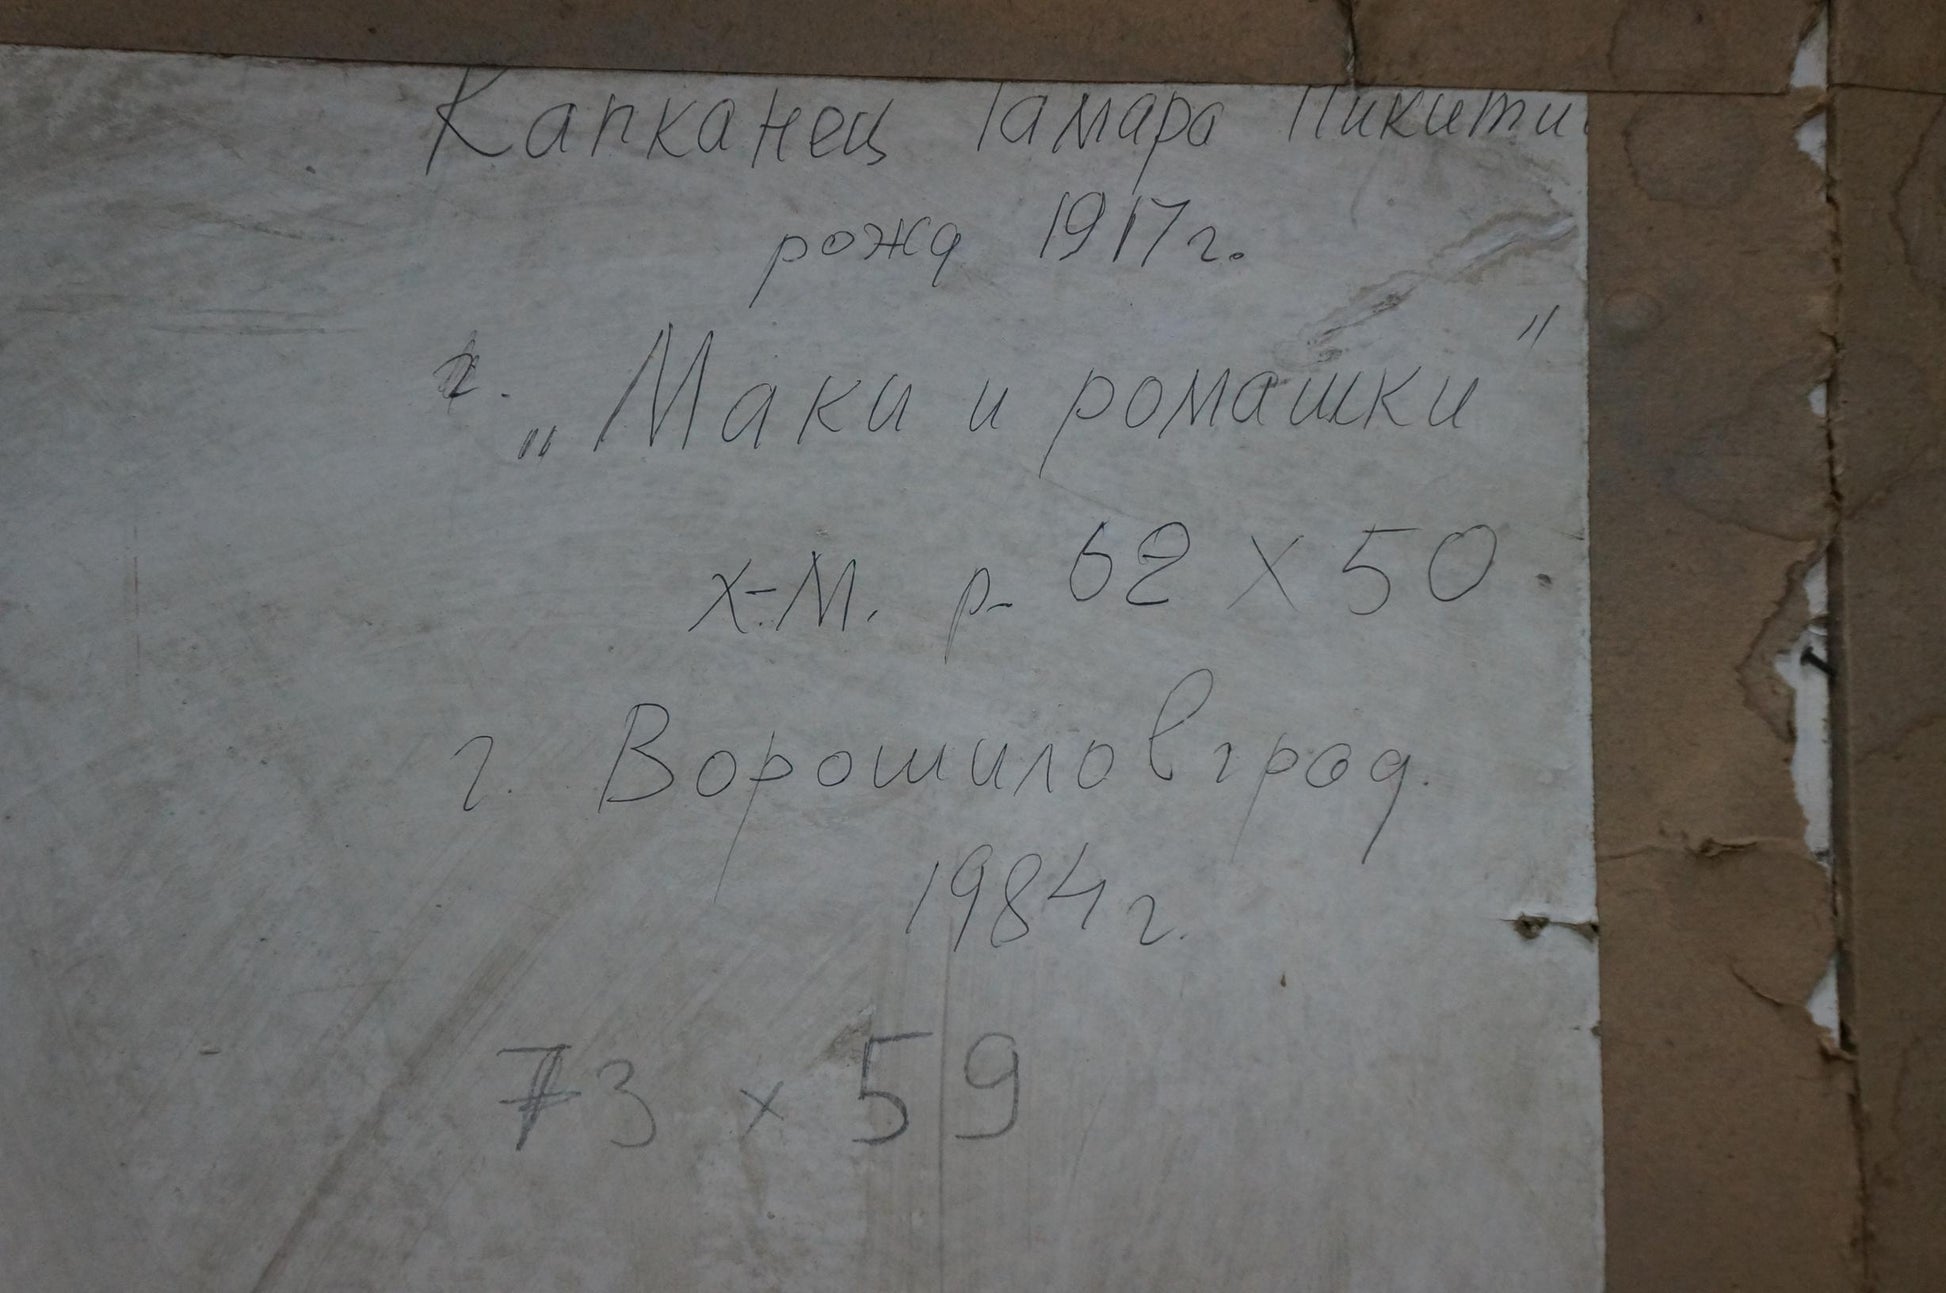 Капканец Тамара Никити
рожд 1917г.
„Маки и ромашки"
х-м. р- 62 х 50.
г. Ворошиловград.
1984г.
73 х 59